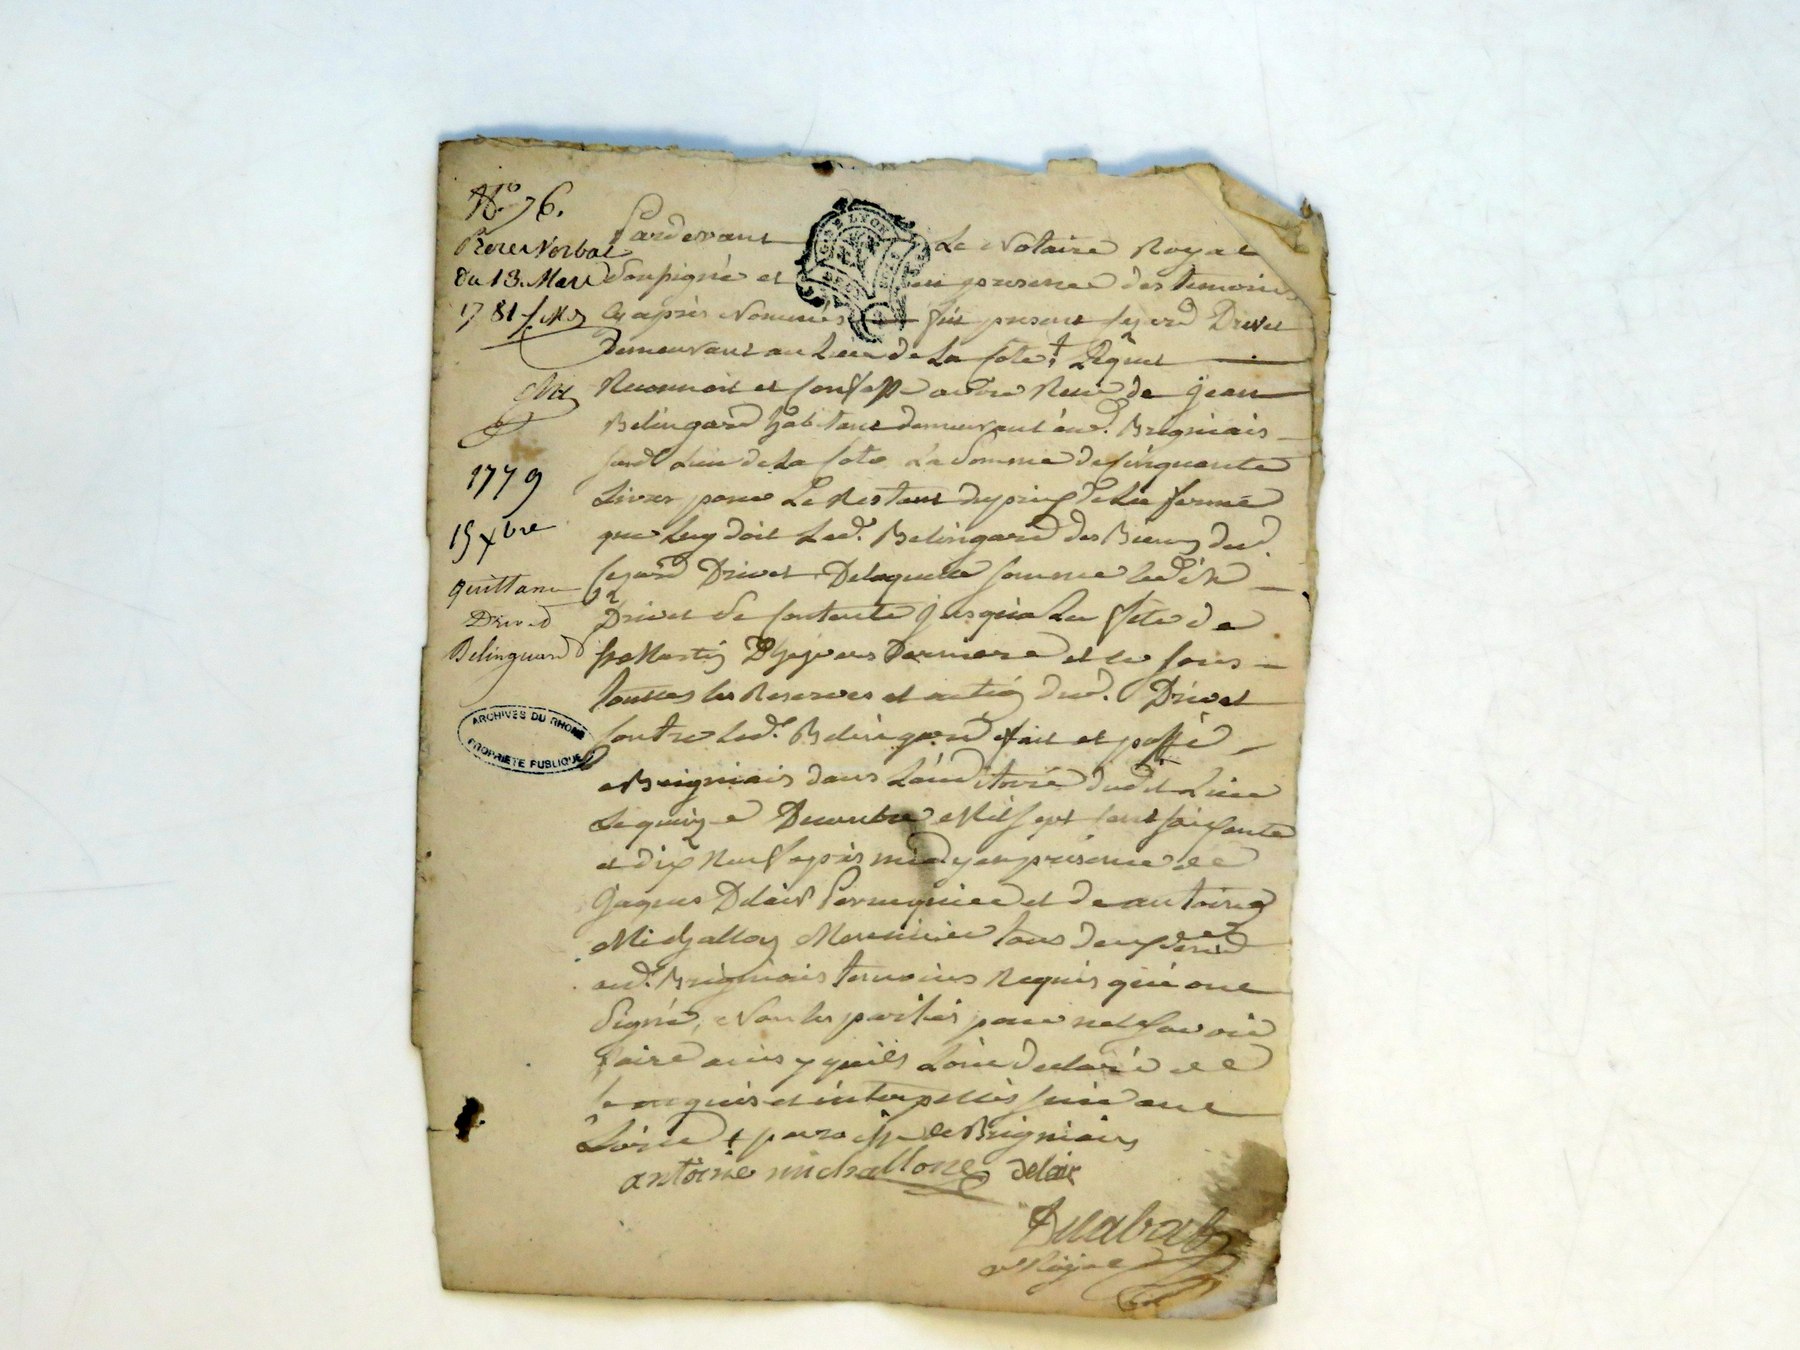 N.º 76.
Procès Verbal
du 13. Mars
1781
1779
15 xbre
quittance
Drivet
Belinguard
ARCHIVES DU RHONE
PROPRIETE PUBLIQUE
GEN DE LYON
Pardevant Le Notaire Royal
Soussigné et en presence des temoins
cy après Nommés fut present Drivet
demeurant au Lieu de La Cote †
Reconnoit et confesse avoir Receu de Jean
Belingard habitant demeurant aud. Brigniais
Lieu de La Cote La Somme de Cinquante
Livres pour Le Restant du prix de La ferme
que Luy doit Led. Belingard des Biens dud.
Drivet De laquelle somme led.
Drivet Se Contente jusqu'a La fete de
St Martin Derniere et ce sous
touttes les Reserves et action dud. Drivet
Contre Led. Belingard fait et passé
a Brigniais dans L'auditoire dudit Lieu
Le quinze Decembre Mil sept cent soixante
et dix Neuf après midy en presence de
Jaques Delaix Perruquier et de antoine
Michallon tous deux
aud. Brigniais temoins Requis qui ont
Signé, Non les parties pour ne Sçavoir
faire ainsy qu'ils L'ont declaré de
ce enquis et interpellés suivant
L'ord. † paroisse de Brigniais
antoine michallone delaix
Royal